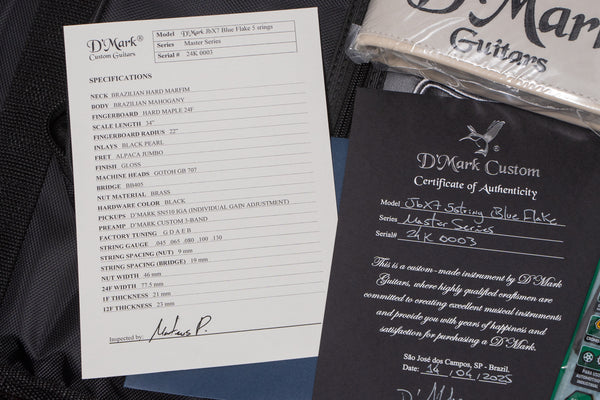 D'Mark®
Custom Guitars
Model D'Mark JbX7 Blue Flake 5 srings
Series Master Series
Serial # 24K 0003
SPECIFICATIONS
NECK BRAZILIAN HARD MARFIM
BODY BRAZILIAN MAHOGANY
FINGERBOARD HARD MAPLE 24F
SCALE LENGTH 34"
FINGERBOARD RADIUS 22"
INLAYS BLACK PEARL
FRET ALPACA JUMBO
FINISH GLOSS
MACHINE HEADS GOTOH GB 707
BRIDGE BB405
NUT MATERIAL BRASS
HARDWARE COLOR BLACK
PICKUPS D'MARK SN518 IGA (INDIVIDUAL GAIN ADJUSTMENT)
PREAMP D'MARK CUSTOM 3-BAND
FACTORY TUNING G D A E B
STRING GAUGE .045 .065 .080 .100 .130
STRING SPACING (NUT) 9 mm
STRING SPACING (BRIDGE) 19 mm
NUT WIDTH 46 mm
24F WIDTH 77.5 mm
1F THICKNESS 21 mm
12F THICKNESS 23 mm
Inspected by: Mateus P.
D'Mark®
Guitars
D'Mark Custom
Certificate of Authenticity
Model JbX7 5string Blue Flake
Series Master Series
Serial# 24K 0003
This is a custom-made instrument by D'Mark
Guitars, where highly qualified craftsmen are
committed to creating excellent musical instruments
and provide you with years of happiness and
satisfaction for purchasing a D'Mark.
São José dos Campos, SP - Brazil.
Date: 14/04/2025
D'Mark